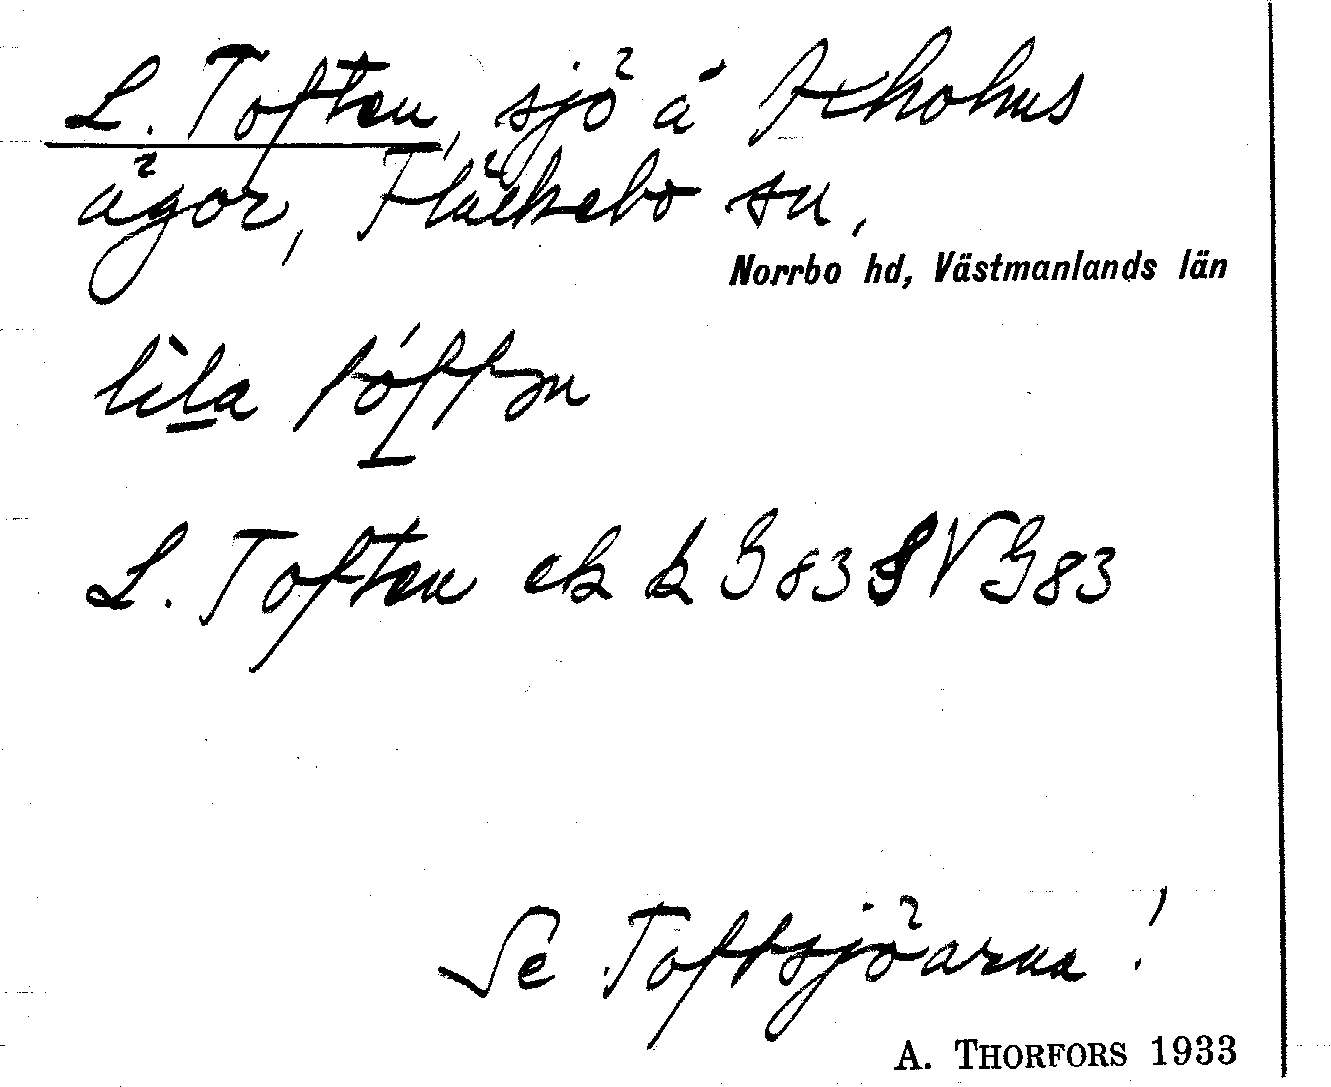 L. Toften, sjö å Ickohus
ägor, Fläckebo sn,
Norrbo hd, Västmanlands län
lila tóftn
L. Toften ek k G 83 S V G 83
Se Toftsjöarna!
A. THORFORS 1933